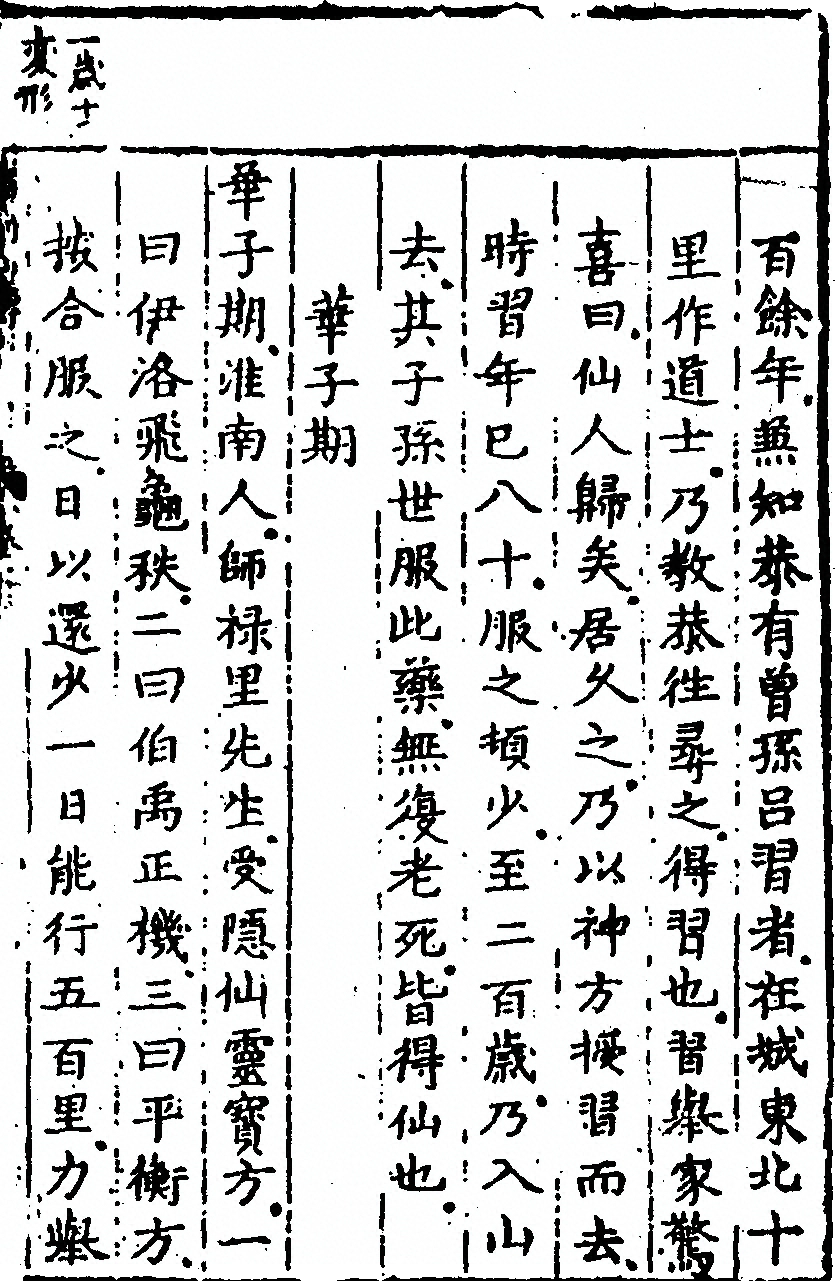 一歲十
変形
百餘年無知恭有曾孫呂習者在城東北十
里作道士乃教恭徃尋之得習也習擧家驚
喜曰仙人歸矣居久之乃以神方授習而去
時習年已八十服之頓少至二百歳乃入山
去其子孫世服此藥無復老死皆得仙也
華子期
華子期淮南人師禄里先生受隠仙靈寶方一
曰伊洛飛龜秩二曰伯禹正機三曰平衡方
按合服之日以還少一日能行五百里力擧